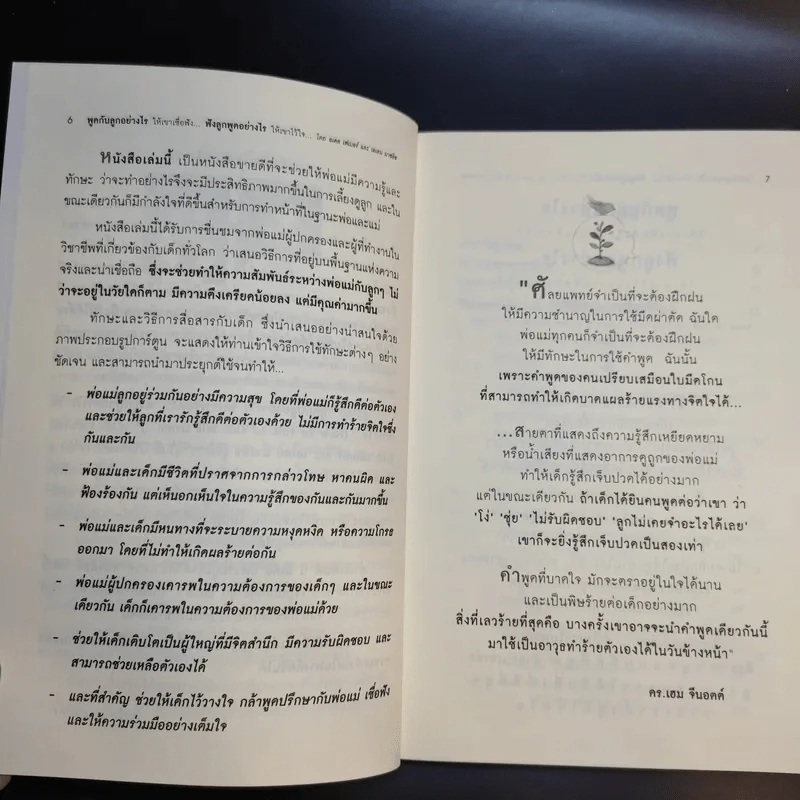 6 พูดกับลูกอย่างไร ให้เขาเชื่อฟัง... ฟังลูกพูดอย่างไร ให้เขาไว้ใจ... โดย อเดล เฟเบอร์ และ เอเลน มาซลิช
หนังสือเล่มนี้ เป็นหนังสือขายดีที่จะช่วยให้พ่อแม่มีความรู้และ
ทักษะ ว่าจะทำอย่างไรจึงจะมีประสิทธิภาพมากขึ้นในการเลี้ยงดูลูก และใน
ขณะเดียวกันก็มีกำลังใจที่ดีขึ้นสำหรับการทำหน้าที่ในฐานะพ่อและแม่
หนังสือเล่มนี้ได้รับการชื่นชมจากพ่อแม่ผู้ปกครองและผู้ที่ทำงานใน
วิชาชีพที่เกี่ยวข้องกับเด็กทั่วโลก ว่าเสนอวิธีการที่อยู่บนพื้นฐานแห่งความ
จริงและน่าเชื่อถือ ซึ่งจะช่วยทำให้ความสัมพันธ์ระหว่างพ่อแม่กับลูกๆ ไม่
ว่าจะอยู่ในวัยใดก็ตาม มีความตึงเครียดน้อยลง แต่มีคุณค่ามากขึ้น
ทักษะและวิธีการสื่อสารกับเด็ก ซึ่งนำเสนออย่างน่าสนใจด้วย
ภาพประกอบรูปการ์ตูน จะแสดงให้ท่านเข้าใจวิธีการใช้ทักษะต่างๆ อย่าง
ชัดเจน และสามารถนำมาประยุกต์ใช้จนทำให้...
- พ่อแม่ลูกอยู่ร่วมกันอย่างมีความสุข โดยที่พ่อแม่ก็รู้สึกดีต่อตัวเอง
และช่วยให้ลูกที่เรารักรู้สึกดีต่อตัวเองด้วย ไม่มีการทำร้ายจิตใจซึ่ง
กันและกัน
- พ่อแม่และเด็กมีชีวิตที่ปราศจากการกล่าวโทษ หาคนผิด และ
ฟ้องร้องกัน แต่เห็นอกเห็นใจในความรู้สึกของกันและกันมากขึ้น
- พ่อแม่และเด็กมีหนทางที่จะระบายความหงุดหงิด หรือความโกรธ
ออกมา โดยที่ไม่ทำให้เกิดผลร้ายต่อกัน
- พ่อแม่ผู้ปกครองเคารพในความต้องการของเด็กๆ และในขณะ
เดียวกัน เด็กก็เคารพในความต้องการของพ่อแม่ด้วย
- ช่วยให้เด็กเติบโตเป็นผู้ใหญ่ที่มีจิตสำนึก มีความรับผิดชอบ และ
สามารถช่วยเหลือตัวเองได้
- และที่สำคัญ ช่วยให้เด็กไว้วางใจ กล้าพูดปรึกษากับพ่อแม่ เชื่อฟัง
และให้ความร่วมมืออย่างเต็มใจ
7
"ศัลยแพทย์จำเป็นที่จะต้องฝึกฝน
ให้มีความชำนาญในการใช้มีดผ่าตัด ฉันใด
พ่อแม่ทุกคนก็จำเป็นที่จะต้องฝึกฝน
ให้มีทักษะในการใช้คำพูด ฉันนั้น
เพราะคำพูดของคนเปรียบเสมือนใบมีดโกน
ที่สามารถทำให้เกิดบาดแผลร้ายแรงทางจิตใจได้...
...สายตาที่แสดงถึงความรู้สึกเหยียดหยาม
หรือน้ำเสียงที่แสดงอาการดูถูกของพ่อแม่
ทำให้เด็กรู้สึกเจ็บปวดได้อย่างมาก
แต่ในขณะเดียวกัน ถ้าเด็กได้ยินคนพูดต่อว่าเขา ว่า
'โง่' 'ซุ่ย' 'ไม่รับผิดชอบ' 'ลูกไม่เคยจำอะไรได้เลย'
เขาก็จะยิ่งรู้สึกเจ็บปวดเป็นสองเท่า
คำพูดที่บาดใจ มักจะตราอยู่ในใจได้นาน
และเป็นพิษร้ายต่อเด็กอย่างมาก
สิ่งที่เลวร้ายที่สุดคือ บางครั้งเขาอาจจะนำคำพูดเดียวกันนี้
มาใช้เป็นอาวุธทำร้ายตัวเองได้ในวันข้างหน้า"
ดร.เฮม จีนอตต์